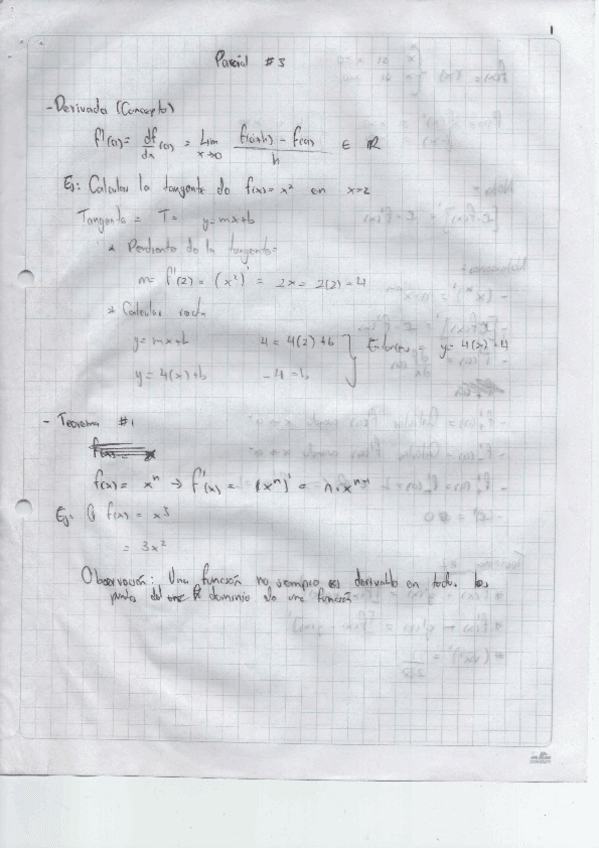 1
Parcial #3
- Derivada (Concepto)
f'(a) = df/dx (a) = Lim x→0 f(a+h) - f(a) / h ∈ ℝ
Ej: Calcular la tangente de f(x) = x² en x=2
Tangente = T = y = mx+b
* Pendiente de la tangente =
m = f'(2) = (x²)' = 2x = 2(2) = 4
* Calcular recta
y = mx+b 4 = 4(2)+b } Entonces = y = 4(x) - 4
y = 4(x)+b -4 = b
- Teorema #1
f(x) = xⁿ → f'(x) = (xⁿ)' = n·xⁿ⁻¹
Ej: f(x) = x³
= 3x²
Observación: Una función no siempre es derivable en todos los
puntos del dominio de una función